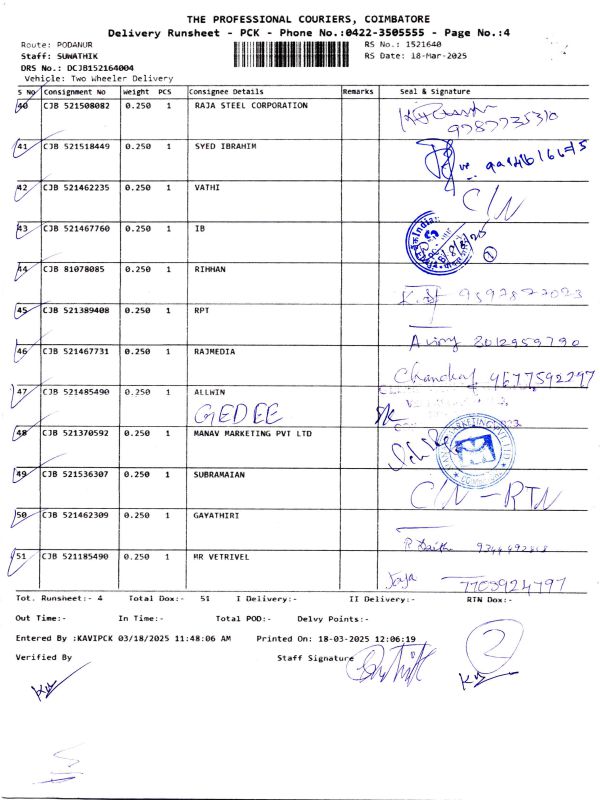 THE PROFESSIONAL COURIERS, COIMBATORE
Delivery Runsheet - PCK - Phone No.:0422-3505555 - Page No.:4
Route: PODANUR RS No.: 1521640
Staff: SUWATHIK RS Date: 18-Mar-2025
DRS No.: DCJB152164004
Vehicle: Two Wheeler Delivery
S No Consignment No Weight PCS Consignee Details Remarks Seal & Signature
40 CJB 521508082 0.250 1 RAJA STEEL CORPORATION
9787735310
41 CJB 521518449 0.250 1 SYED IBRAHIM
42 CJB 521462235 0.250 1 VATHI
C/N
43 CJB 521467760 0.250 1 IB
44 CJB 81078085 0.250 1 RIHHAN
45 CJB 521389408 0.250 1 RPT
8012959790
46 CJB 521467731 0.250 1 RAJMEDIA
9677592297
47 CJB 521485490 0.250 1 ALLWIN
GEDEE
48 CJB 521370592 0.250 1 MANAV MARKETING PVT LTD
49 CJB 521536307 0.250 1 SUBRAMAIAN
C/N - RTN
50 CJB 521462309 0.250 1 GAYATHIRI
51 CJB 521185490 0.250 1 MR VETRIVEL
Jaja 7703924797
Tot. Runsheet:- 4 Total Dox:- 51 I Delivery:- II Delivery:- RTN Dox:-
Out Time:- In Time:- Total POD:- Delvy Points:-
Entered By :KAVIPCK 03/18/2025 11:48:06 AM Printed On: 18-03-2025 12:06:19
Verified By Staff Signature
2